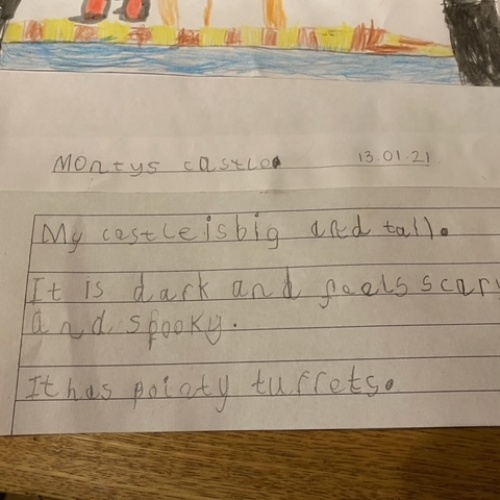 Montys castle 13.01.21
My castle is big and tall.
It is dark and feels scary
and spooky.
It has pointy turrets.